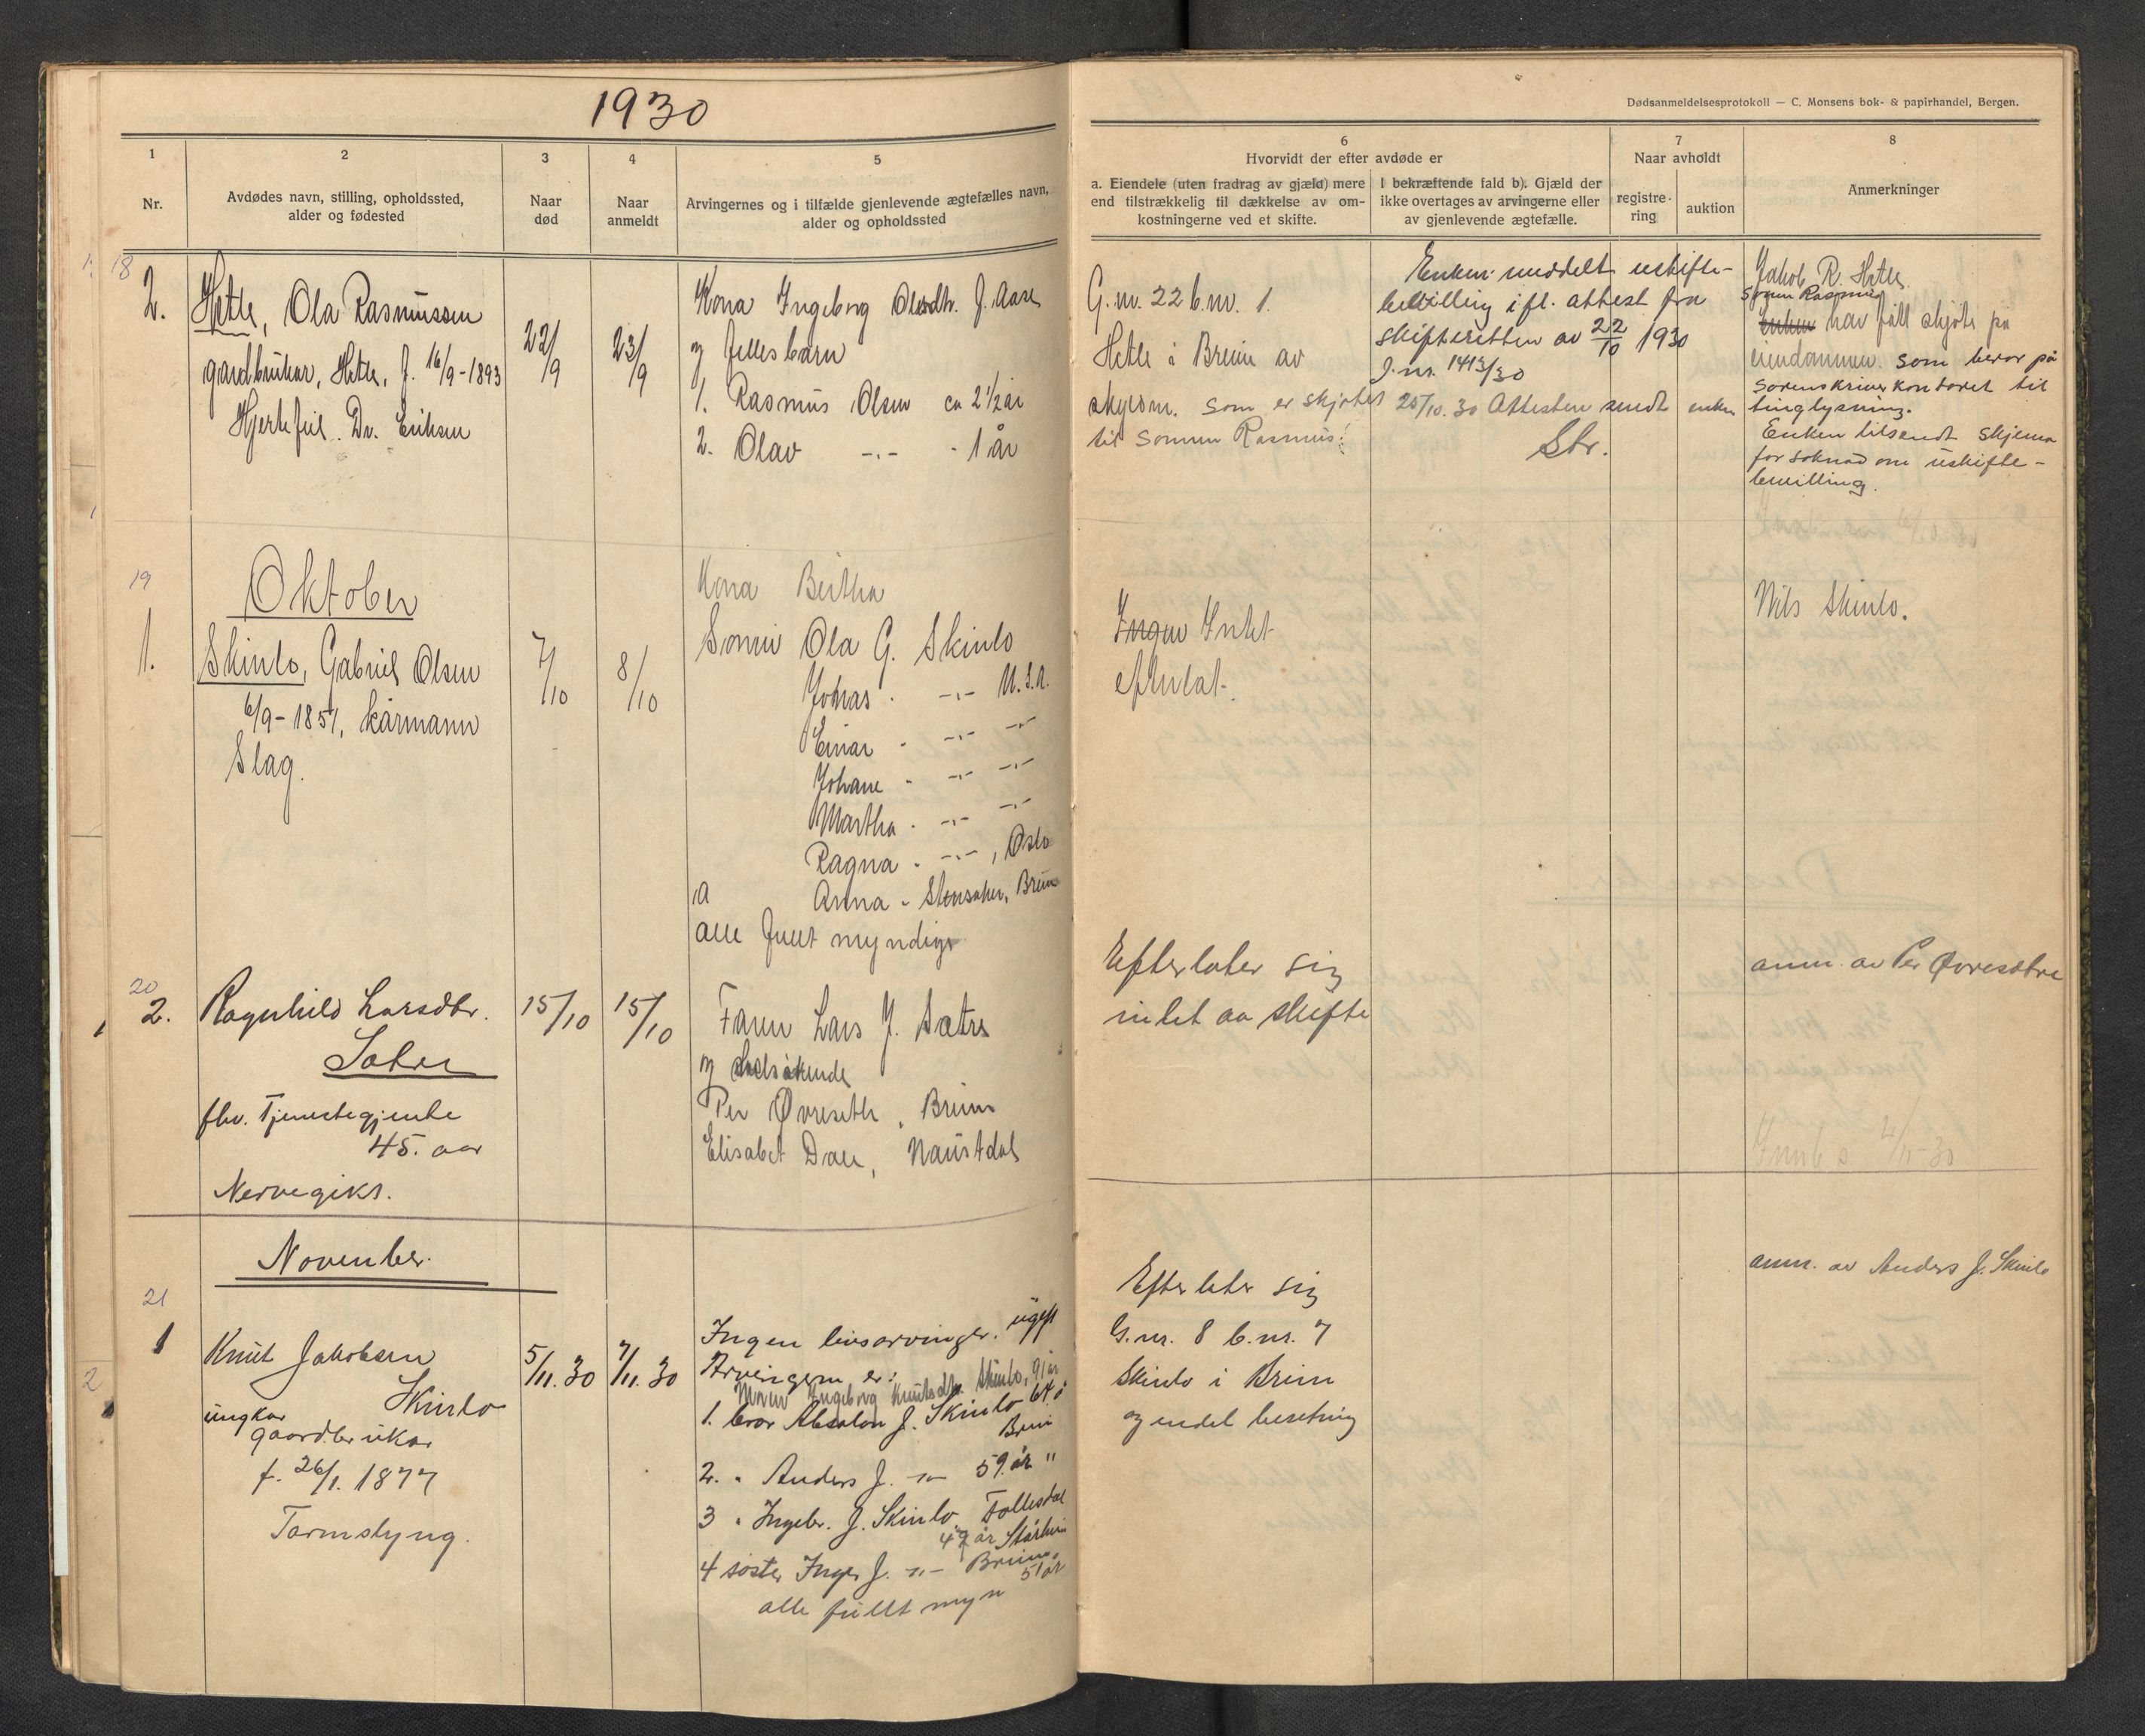 1930
Dødsanmeldelsesprotokoll — C. Monsens bok- & papirhandel, Bergen.
1
Nr.
2
Avdødes navn, stilling, opholdssted,
alder og fødested
3
Naar
død
4
Naar
anmeldt
5
Arvingernes og i tilfælde gjenlevende ægtefælles navn,
alder og opholdssted
6
Hvorvidt der efter avdøde er
a. Eiendele (uten fradrag av gjæld) mere
end tilstrækkelig til dækkelse av om-
kostningerne ved et skifte.
I bekræftende fald b). Gjæld der
ikke overtages av arvingerne eller
av gjenlevende ægtefælle.
7
Naar avholdt
registre-
ring
auktion
8
Anmerkninger
18
2.
Hetle, Ola Rasmussen
gardbrukar, Hetle, f. 16/9-1893
Hjertefeil. Dr. Eriksen
22/9
23/9
Kona Ingeborg Olsdtr. f. Aase
og fellesbarn
1. Rasmus Olsen ca 2 1/2 år
2. Olav -"- - 1 år
G.nr. 22 b.nr. 1.
Hetle i Breim av
skyldm. som er skjøtet
til sonnen Rasmus!
Enken meddelt uskifte-
bevilling ifl. attest fra
skifteretten av 22/10 1930
J.nr. 1413/30
25/10.30 Attesten sendt enken
Str.
Jakob R. Hetle.
Sonen Rasmus
Enken har fått skjøte på
eiendommen som beror på
sorenskriverkontoret til
tinglysning.
Enken tilsendt skjema
for søknad om uskifte-
bevilling.
19
Oktober
1.
Skinlo, Gabriel Olsen
6/9-1851, kårmann
Slag.
7/10
8/10
Kona Bertha
Sonen Ola G. Skinlo
Johas - -"- U.S.A.
Einar - -"- -"-
Johane - -"- -"-
Martha - -"- -"-
Ragna - -"-, Oslo
Anna - Stensaker, Breim
alle fullt myndige
Ingen Intet
efterlat.
Nils Skinlo.
20
2.
Ragnhild Larsdtr.
Sætre
fhv. Tjenestegjente
45. aar
Nervegikt.
15/10
15/10
Faren Lars J. Sætre
og helsøskende
Per Øvreseth, Breim
Elisabet Dale, Naustdal
Efterlater sig
intet aa skifte
anm. av Per Øvresetre
November.
21
1
Knut Jakobsen
Skinlo
ungkar
gaardbrukar
f. 26/1. 1877
Tarmslyng.
5/11.30
7/11.30
Ingen livsarvinger. ugift
Arvingern er:
Moren Ingeborg Knutsdtr. Skinlo, 91 år
1. bror Absalon J. Skinlo 64 å
Breim
2. " Anders J. -"- 59 år "
3 " Ingebr. J. Skinlo Follesdal
49 år Stårheim
4 søster Inger J. -"- Breim,
51 år
alle fullt myn
Efterlater sig
G.nr. 8 b.nr. 7
Skinlo i Breim
og endel besetning
anm. av Anders J. Skinlo